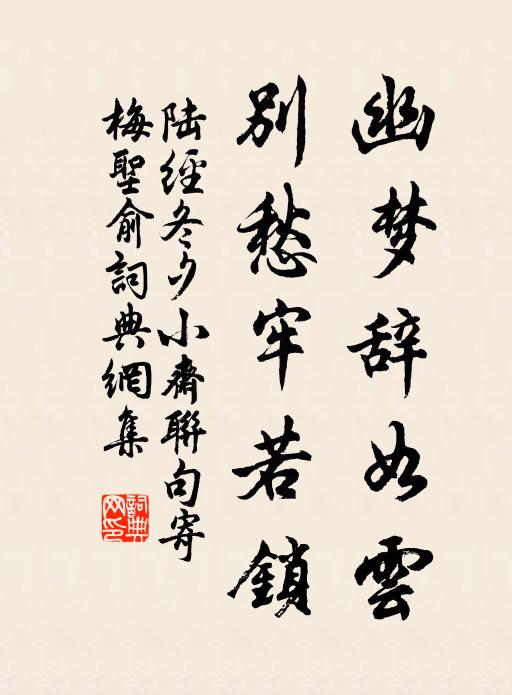 幽梦辞如雲
别愁牢若鎖
陆經冬夕小齋聯句寄
梅聖俞詞典網集
詞典网印